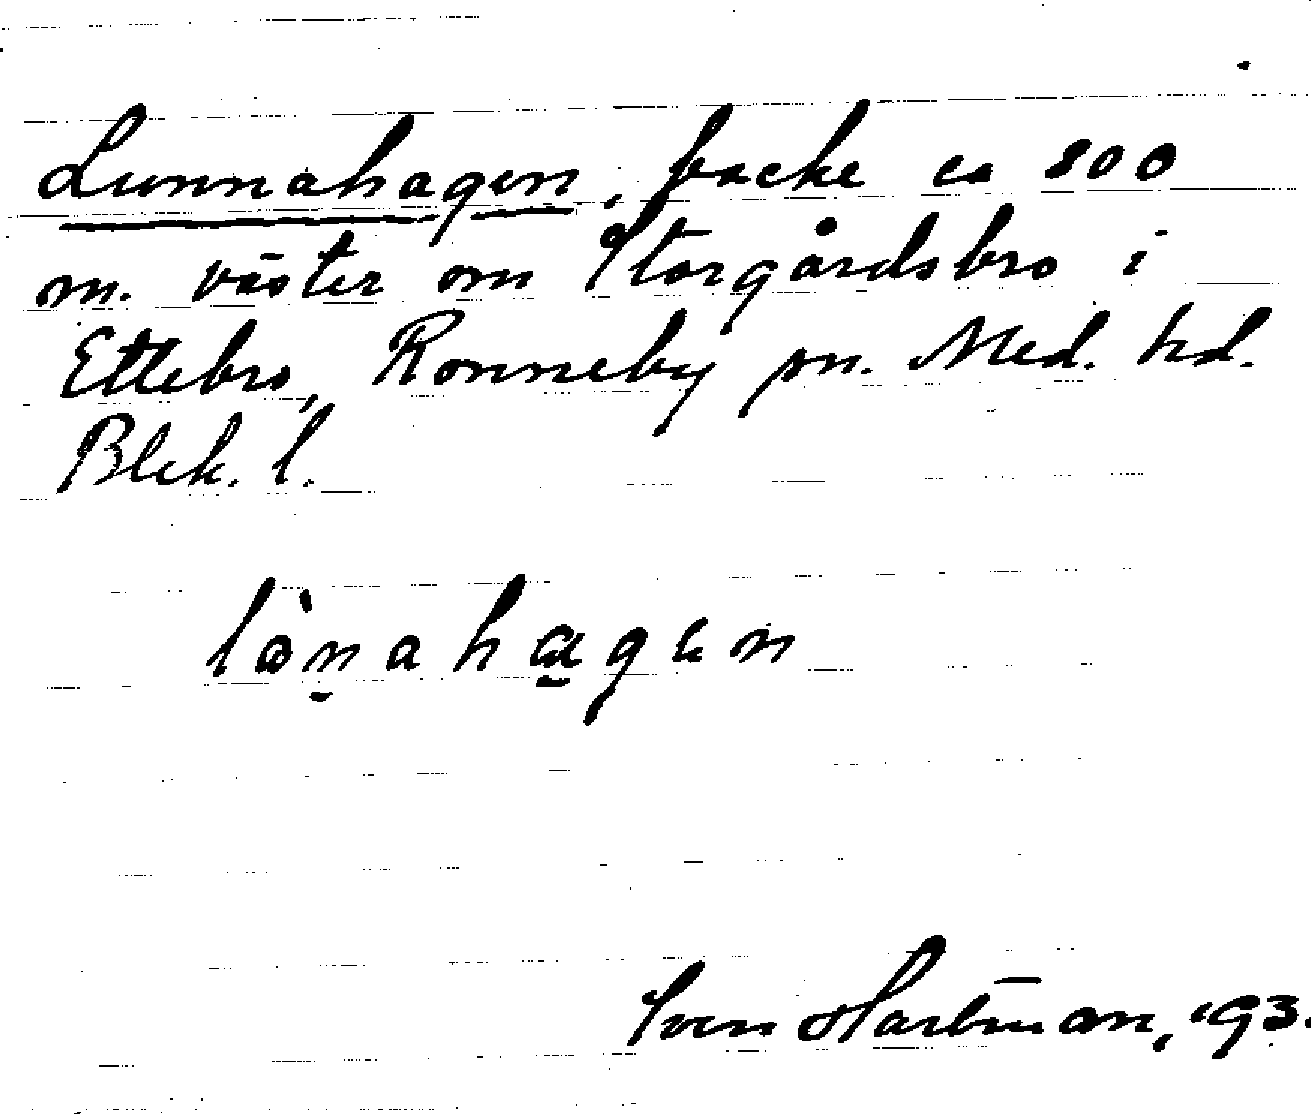 Lunnahagen, backe ca 800
m. väster om Storgårdsbro i
Ettebro, Ronneby sn. Med. hd.
Blek. l.
lònahagen
Sven Hartman, 193.